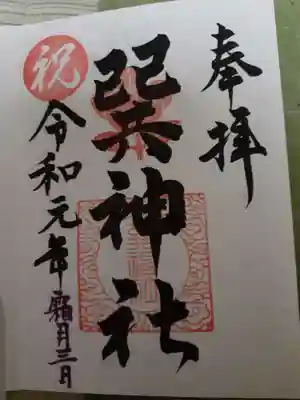 奉拝
巽神社
祝
令和元年霜月三日